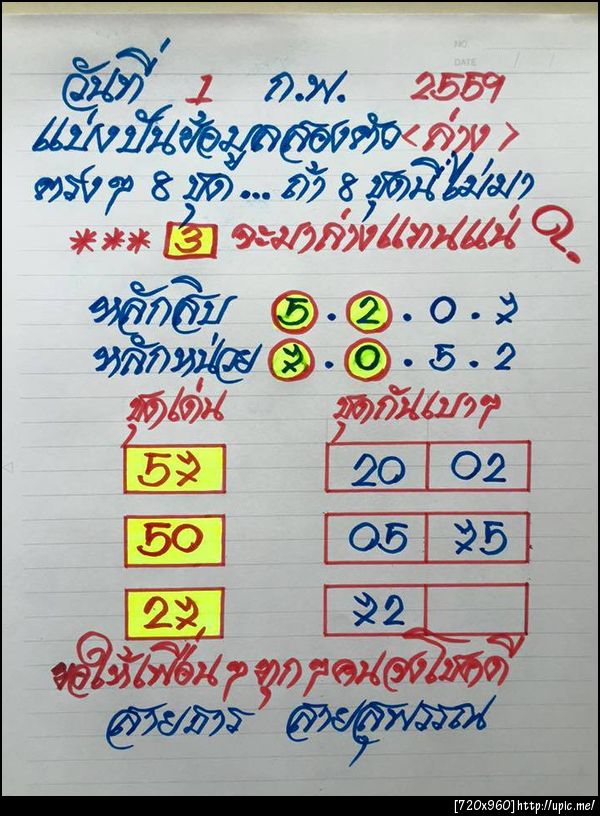 NO.
DATE / /
วันที่ 1 ก.พ. 2559
แบ่งปันข้อมูลสองตัว <ล่าง>
ตรงๆ 8 ชุด... ถ้า 8 ชุดนี้ไม่มา
*** 3 จะมาล่างแทนแน่ ?
หลักสิบ 5 . 2 . 0 . 7
หลักหน่วย 7 . 0 . 5 . 2
ชุดเด่น ชุดกันเบาๆ
57 20 02
50 05 75
27 72
ขอให้เพื่อนๆ ทุกๆคนจงโชคดี
สายธาร สายสุพรรณ
[720x960] http://upic.me/